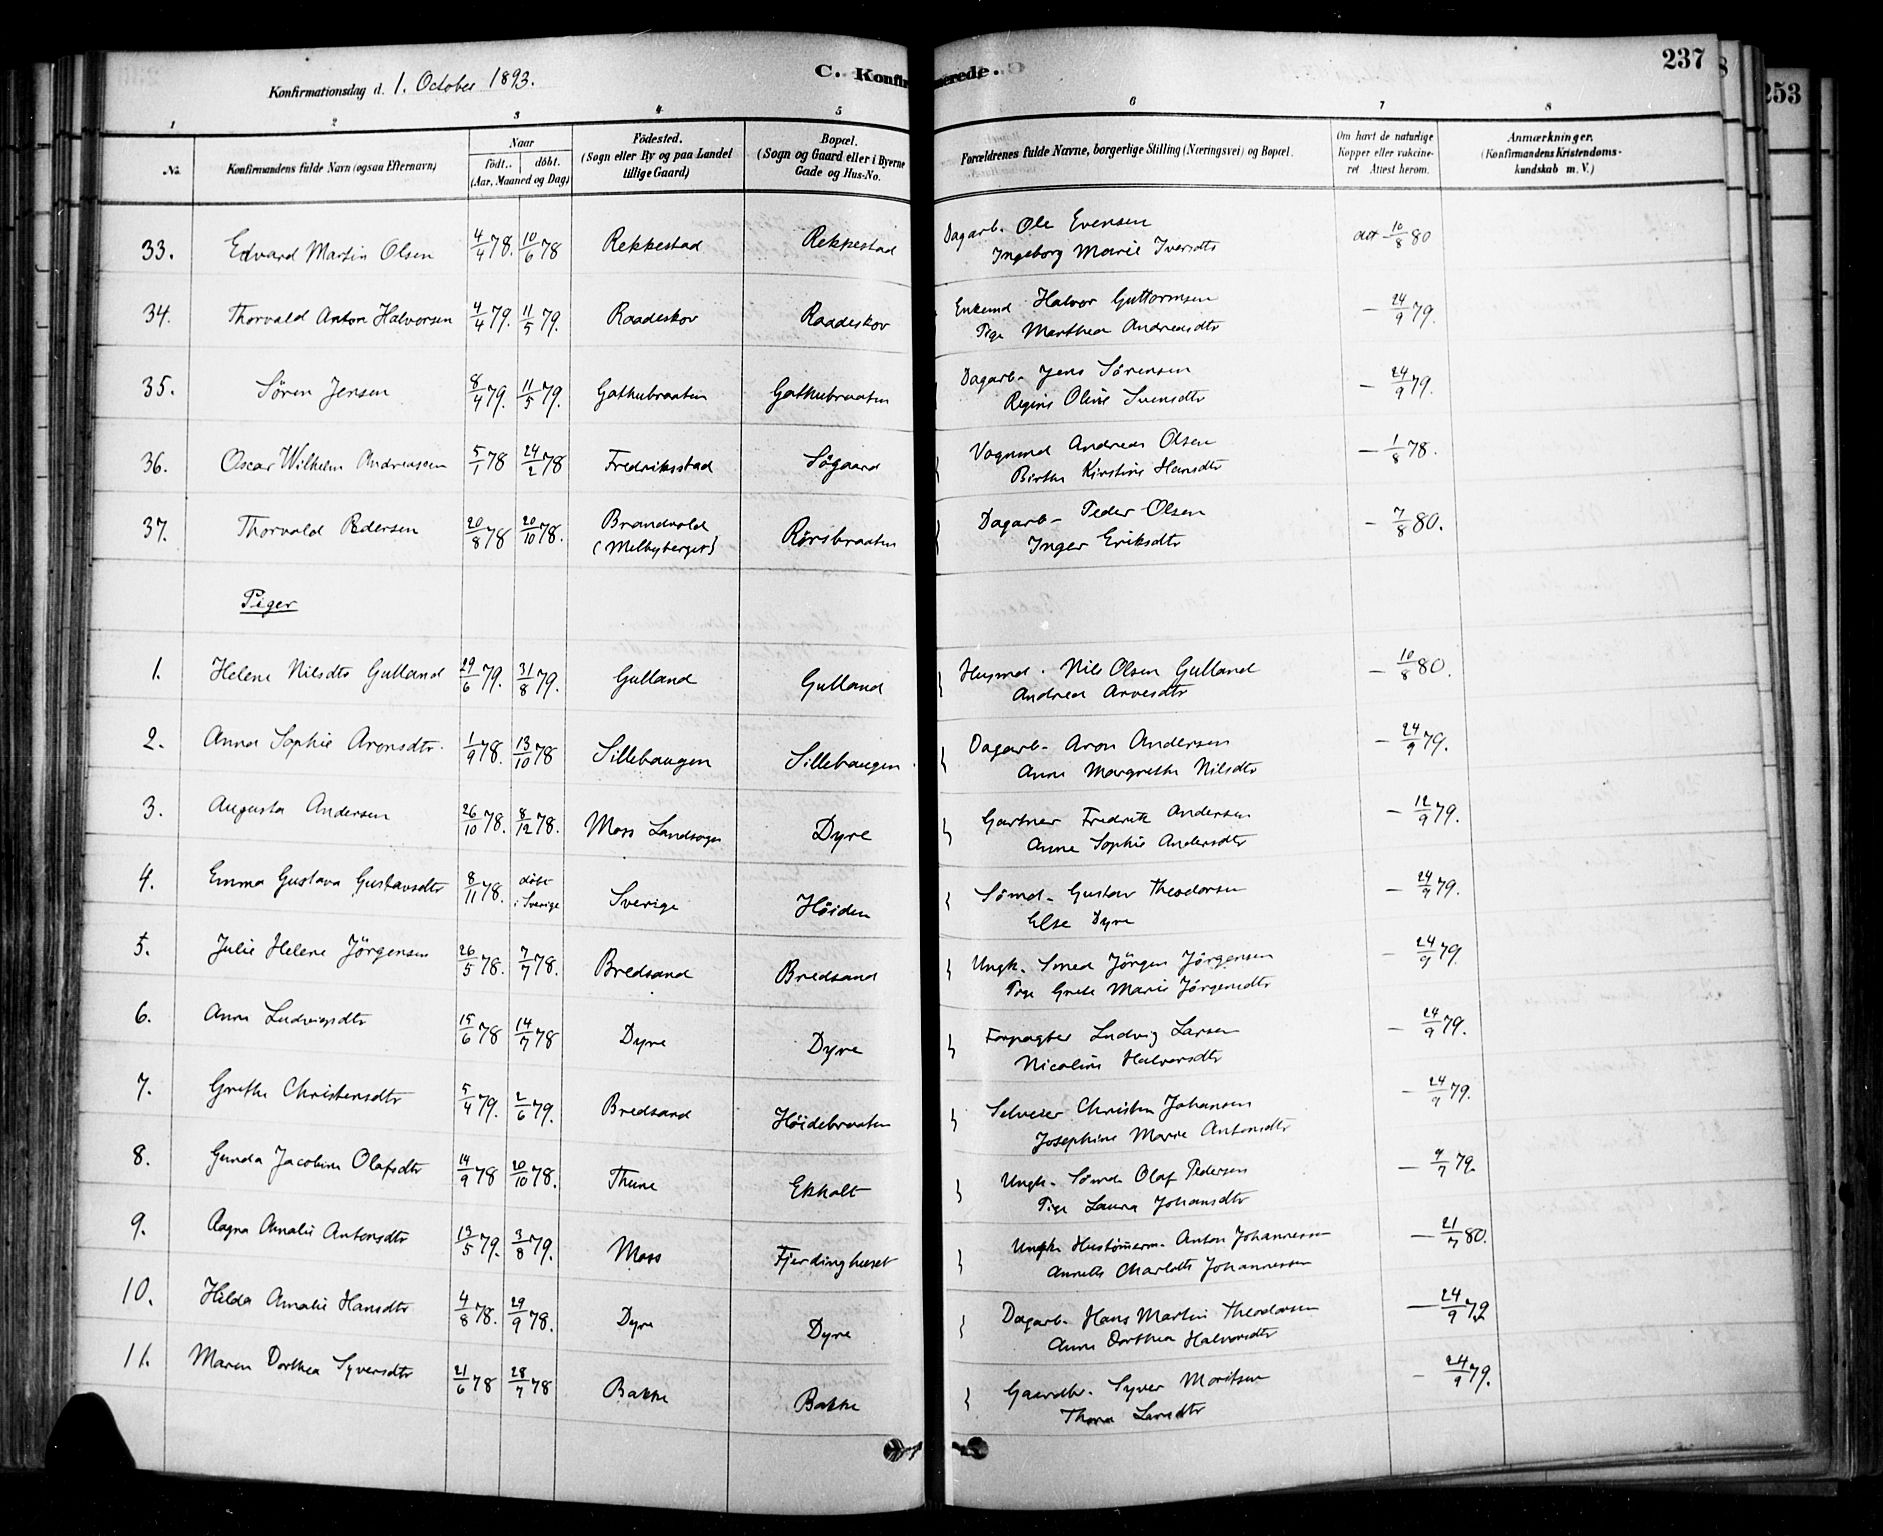 Konfirmationsdag d. 1. October 1893.
C. Konfirmerede.
237
253
1 2 3 4 5 6 7 8
No. Konfirmandens fulde Navn (ogsaa Efternavn) Naar født. døbt. (Aar, Maaned og Dag) Födested. (Sogn eller By og paa Landet tillige Gaard) Bopæl. (Sogn og Gaard eller i Byerne Gade og Hus-No. Forældrenes fulde Navne, borgerlige Stilling (Næringsvei) og Bopæl. Om havt de naturlige Kopper eller vakcineret Attest herom. Anmærkninger. (Konfirmandens Kristendomskundskab m. V.)
33. Edvard Martin Olsen 4/4 78. 10/6 78 Rekkestad Rekkestad Dagarb. Ole Evensen att - 10/8 80
Ingeborg Marie Iversdtr
34. Thorvald Anton Halvorsen 4/4 79. 11/5 79. Raadeskov Raadeskov Enkemd Halvor Guttormsen - 24/9 79.
Pige Marthea Andreasdtr
35. Søren Jensen 8/4 79. 11/5 79. Gathubraaten Gathubraaten Dagarb. Jens Sørensen - 24/9 79.
Regine Oline Svensdtr
36. Oscar Wilhelm Andreassen 5/1 78 24/2 78 Fredriksstad Søgaard Vognmd Andreas Olsen - 1/8 78.
Birthe Kirstine Hansdtr
37. Thorvald Pedersen 20/8 78 20/10 78. Brandvold (Melbyberget) Rørsbraaten Dagarb. Peder Olsen - 7/8 80.
Inger Eriksdtr
Piger
1. Helene Nilsdtr Gulland 29/6 79. 31/8 79. Gulland Gulland Husmd. Nils Olsen Gulland - 10/8 80.
Andrea Arvesdtr
2. Anna Sophie Aronsdtr. 1/9 78. 13/10 78 Sillebaugen Sillebaugen Dagarb. Aron Andersen - 24/9 79.
Anne Margrethe Nilsdtr
3. Augusta Andersen 26/10 78. 8/12 78. Moss Landsogn Dyre Gartner Fredrik Andersen - 12/9 79.
Anne Sophie Andersdtr
4. Emma Gustava Gustavsdtr 8/11 78. døbt i Sverige Sverige Høiden Sømd. Gustav Theodorsen - 24/9 79.
Else Dyre
5. Julie Helene Jörgensen 26/5 78. 7/7 78. Bredsand Bredsand Ungk. Smed Jörgen Jörgensen - 24/9 79.
Pige Grete Marie Jörgensdtr
6. Anne Ludvigsdtr 15/6 78 14/7 78 Dyre Dyre Forpagter Ludvig Larsen - 24/9 79.
Nicoline Halvorsdtr
7. Grethe Christensdtr 5/4 79. 2/6 79. Bredsand Høidebraaten Selveier Christen Johansen - 24/9 79.
Josephine Marie Antonsdtr
8. Gunda Jacobine Olafsdtr 14/9 78 20/10 78. Thune Ekholt Ungk. Sømd Olaf Pedersen - 9/7 79.
Pige Laura Johansdtr
9. Ragna Amalie Antonsdtr 13/5 79. 3/8 79. Moss Fjerdinghuset Ungk. Hustømerm. Anton Johannessen - 21/7 80.
Annette Charlotte Johannessen
10. Hilda Amalie Hansdtr 4/8 78. 29/9 78. Dyre Dyre Dagarb. Hans Martin Theodorsen - 24/9 79
Anne Dorthea Halvorsdtr
11. Maren Dorthea Syversdtr 21/6 78 28/7 78 Bakke Bakke Gaardbr. Syver Moritsen - 24/9 79.
Thora Larsdtr